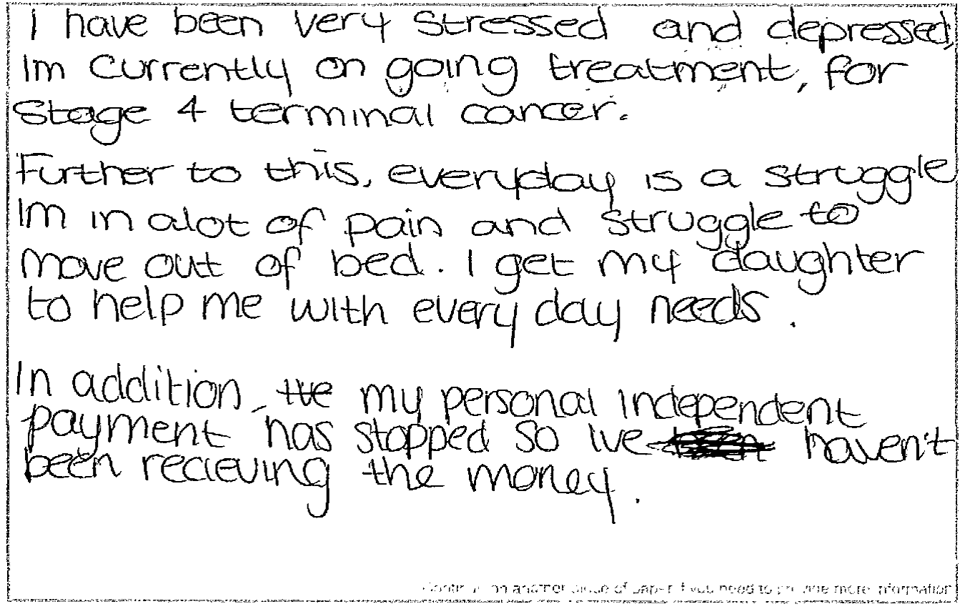 I have been very stressed and depressed,
Im currently on going treatment, for
Stage 4 terminal cancer.
Further to this, everyday is a struggle
Im in alot of pain and struggle to
move out of bed. I get my daughter
to help me with every day needs.
In addition, my personal independent
payment has stopped so ive haven't
been recieving the money.
on another piece of paper if you need to provide more information